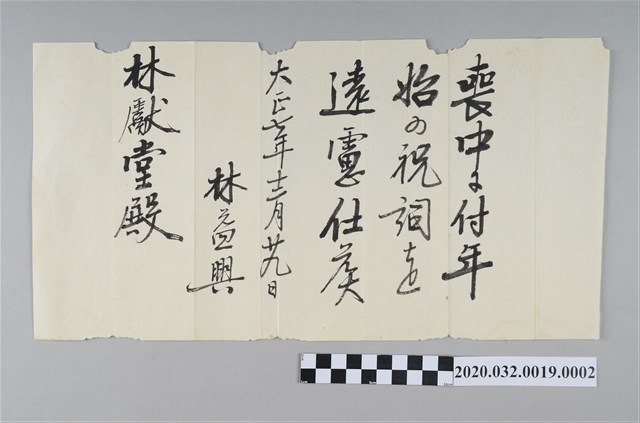 喪中に付年
始の祝詞を
遠慮仕候
大正七年十二月廿九日
林益興
林獻堂殿
2020.032.0019.0002